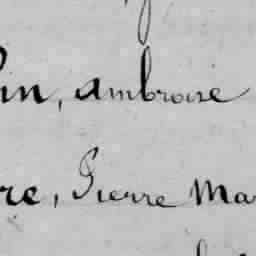 in, Ambroise
re, Pierre Ma